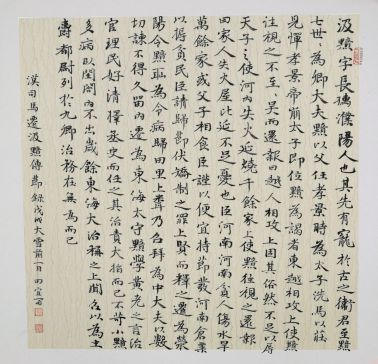 汲黯字長孺濮陽人也其先有寵於古之衛君至黯
七世々為卿大夫黯以父任孝景時為太子洗馬以莊
見憚孝景帝崩太子即位黯為謁者東越相攻上使黯
往視之不至々吳而還報曰越人相攻固其俗然不足以辱
天子之使河內失火延燒千餘家上使黯往視之還報
曰家人失火屋比延不足憂也臣河南河南貧人傷水旱
萬餘家或父子相食臣謹以便宜持節發河南倉粟
以振貧民臣請歸節伏矯制之罪上賢而釋之遷為滎
陽令黯恥為令病歸田里上聞乃召拜為中大夫以數
切諫不得久留內遷為東海太守黯學黃老之言治
官理民好清擇丞史而任之其治責大指而已不苛小黯
多病臥閨閤內不出歲餘東海大治稱之上聞召以為主
爵都尉列於九卿治務在無為而已
漢司馬遷汲黯傳節錄戊戌大雪前一日田宜